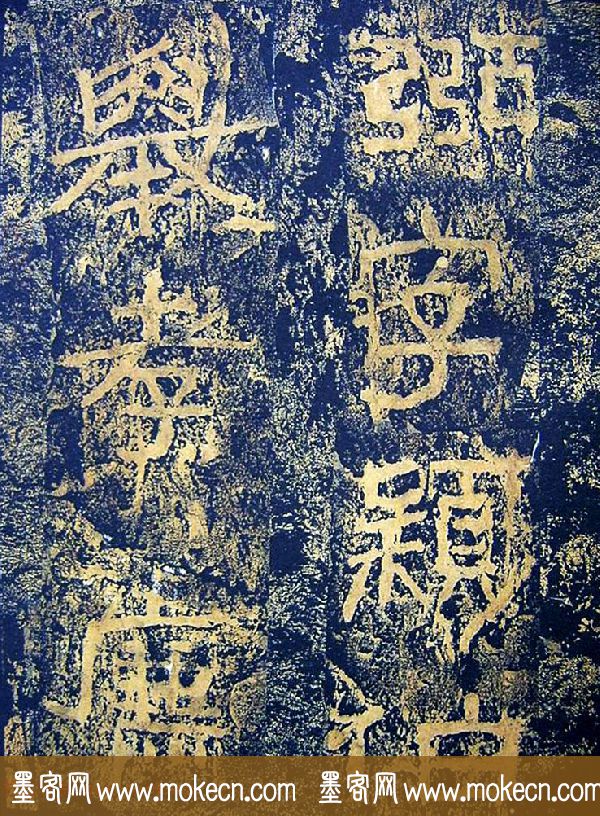 弼字穎伯
舉孝廉
墨客网 www.mokecn.com 墨客网 www.mokecn.com